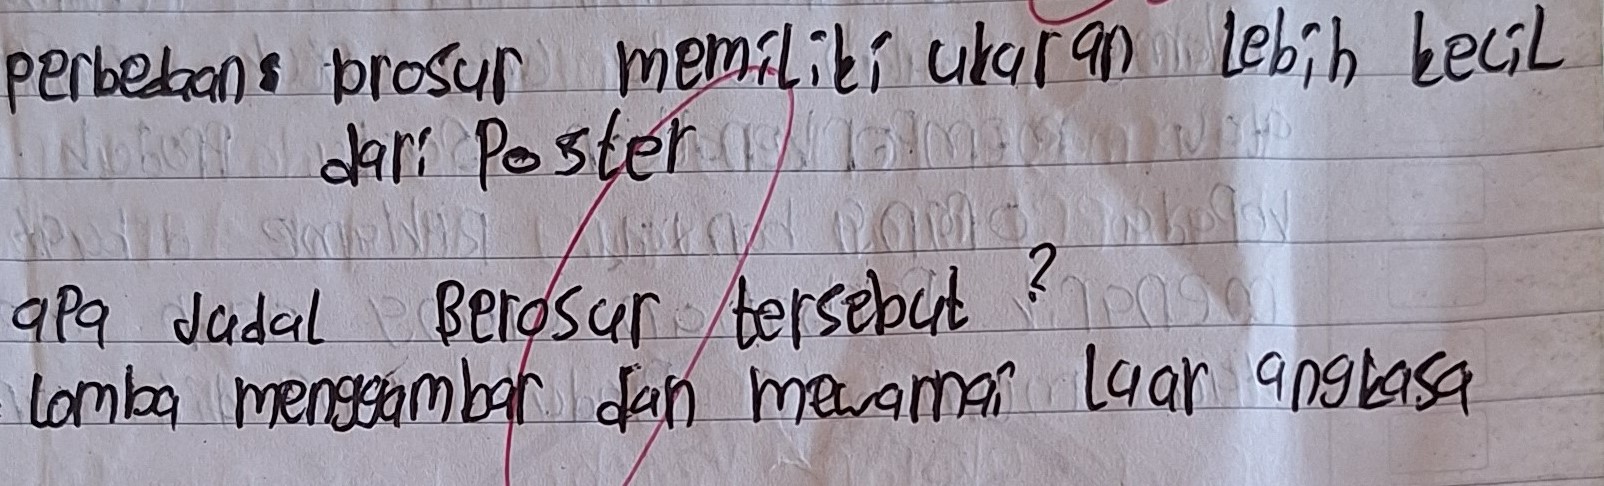 perbebans brosur memiliki ukuran lebih kecil
dari Poster
apa Judal Berosur tersebut ?
lomba menggambar dan mewarnai luar angkasa